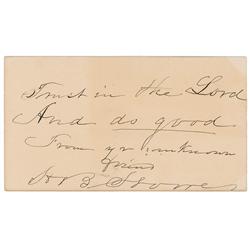 Trust in the Lord
And do good
From yr unknown
friend
H B Stowe